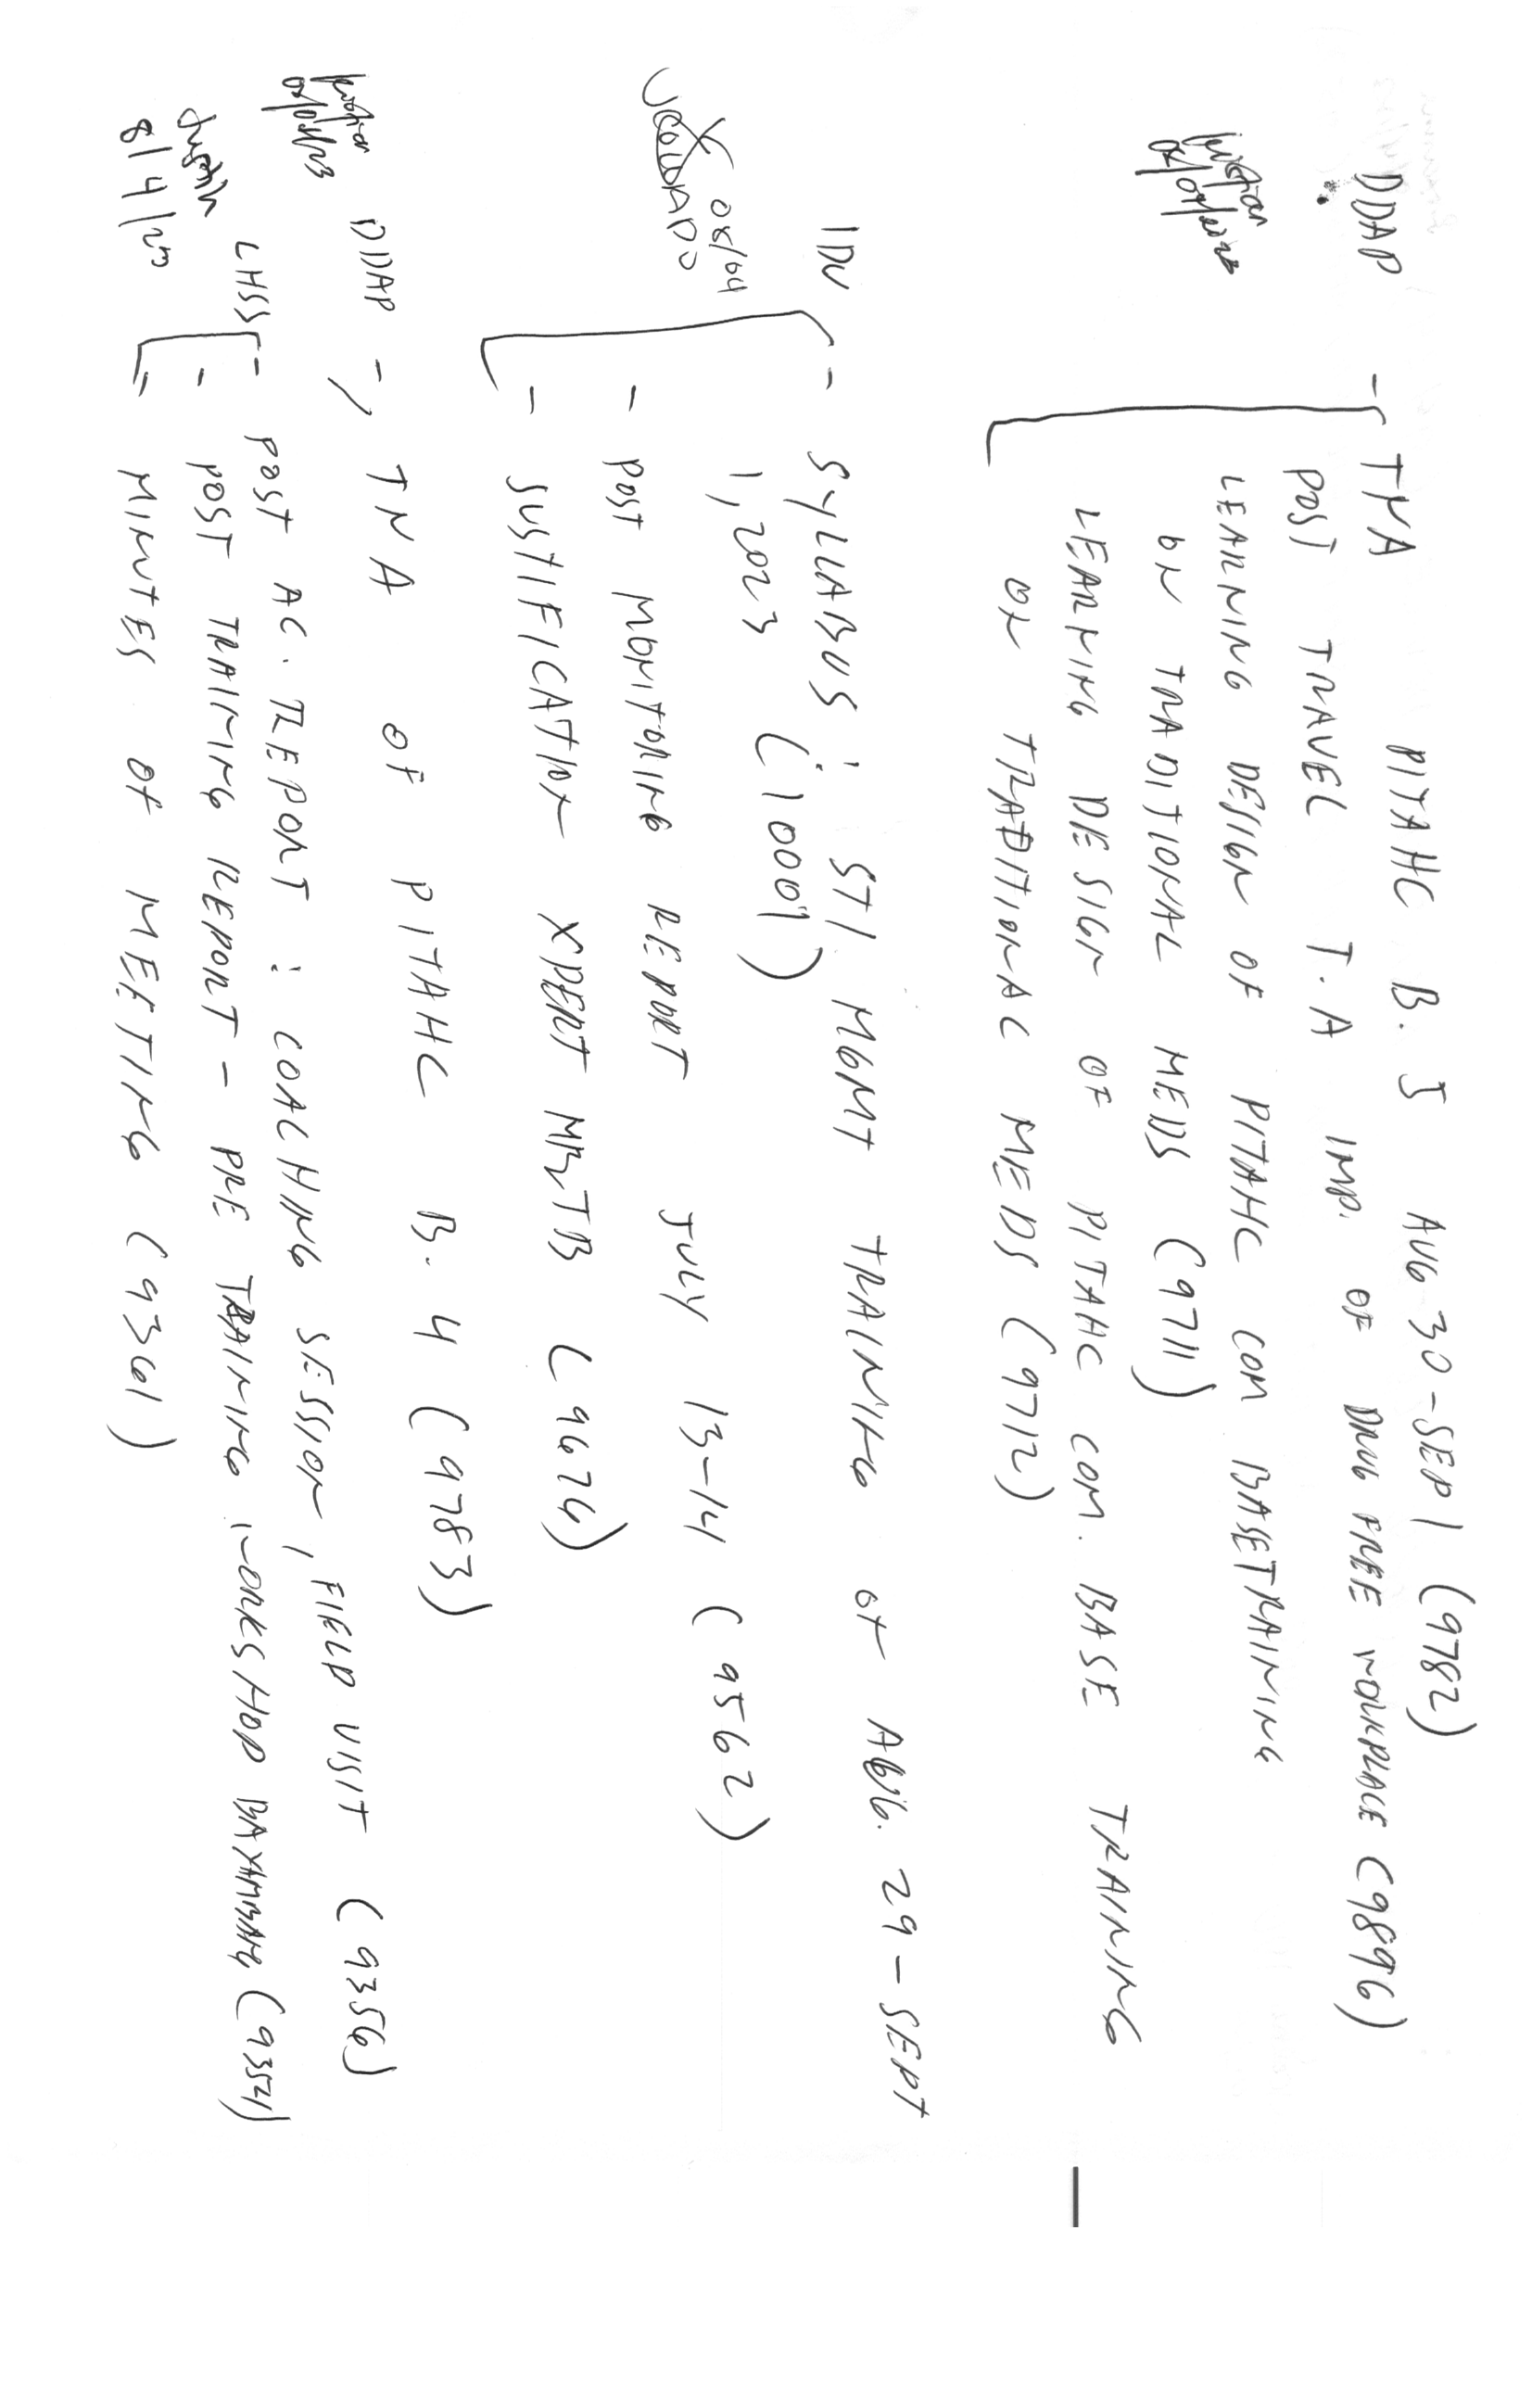 DDAP - TNA PITAHC B. 5 AUG 30 - SEP 1 (9782)
POST TRAVEL T.A IMP. OF DRUG FREE WORKPLACE (9896)
LEARNING DESIGN OF PITAHC COM BASETRAINING
ON TRADITIONAL MEDS (9711)
LEARNING DESIGN OF PITAHC COM. BASE TRAINING
ON TRADITIONAL MEDS (9712)
IDU - SYLLABUS : STI MGMT TRAINING ON AUG. 29 - SEPT
1, 2023 (10009)
08/04
- POST MONITORING REPORT JULY 13-14 (9562)
- JUSTIFICATION XPERT MBTB (9676)
DDAP - TNA OF PITAHC B. 4 (9783)
LHSS - POST AC. REPORT : COACHING SESSION, FIELD VISIT (9356)
- POST TRAINING REPORT - PRE TRAINING WORKSHOP BAYAMBANG (9354)
- MINUTES OF MEETING (9361)
8/4/23